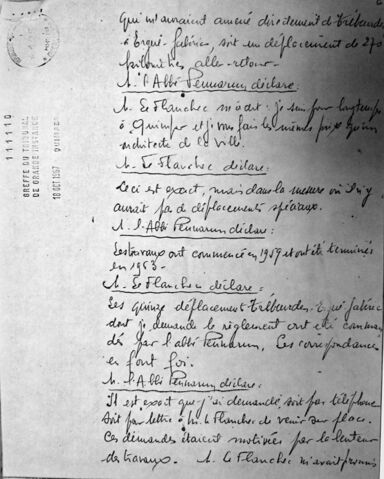 qui m'auraient amené directement de Trébeurden
à Ergué-Gabéric, soit un déplacement de 270
kilomètres aller-retour.
M. l'Abbé Pennarun déclare:
M. Le Flanchec m'a dit: je suis pour longtemps
à Quimper et je vous fais les mêmes prix qu'un
architecte de la ville.
M. Le Flanchec déclare:
Ceci est exact, mais dans la mesure où il n'y
aurait pas de déplacements spéciaux.
M. l'Abbé Pennarun déclare:
Les travaux ont commencé en 1959 et ont été terminés
en 1963.
M. Le Flanchec déclare:
Les quinze déplacements Trébeurden-Ergué Gabéric
dont je demande le règlement ont été comman
dés par l'abbé Pennarun. Les correspondances
en font foi.
M. l'Abbé Pennarun déclare:
Il est exact que j'ai demandé, soit par téléphone
soit par lettre à M. Le Flanchec de venir sur place.
Ces demandes étaient motivées par la lenteur
des travaux. M. Le Flanchec m'avait promis
111110
GREFFE DU TRIBUNAL
DE GRANDE INSTANCE
18 OCT 1967
QUIMPER